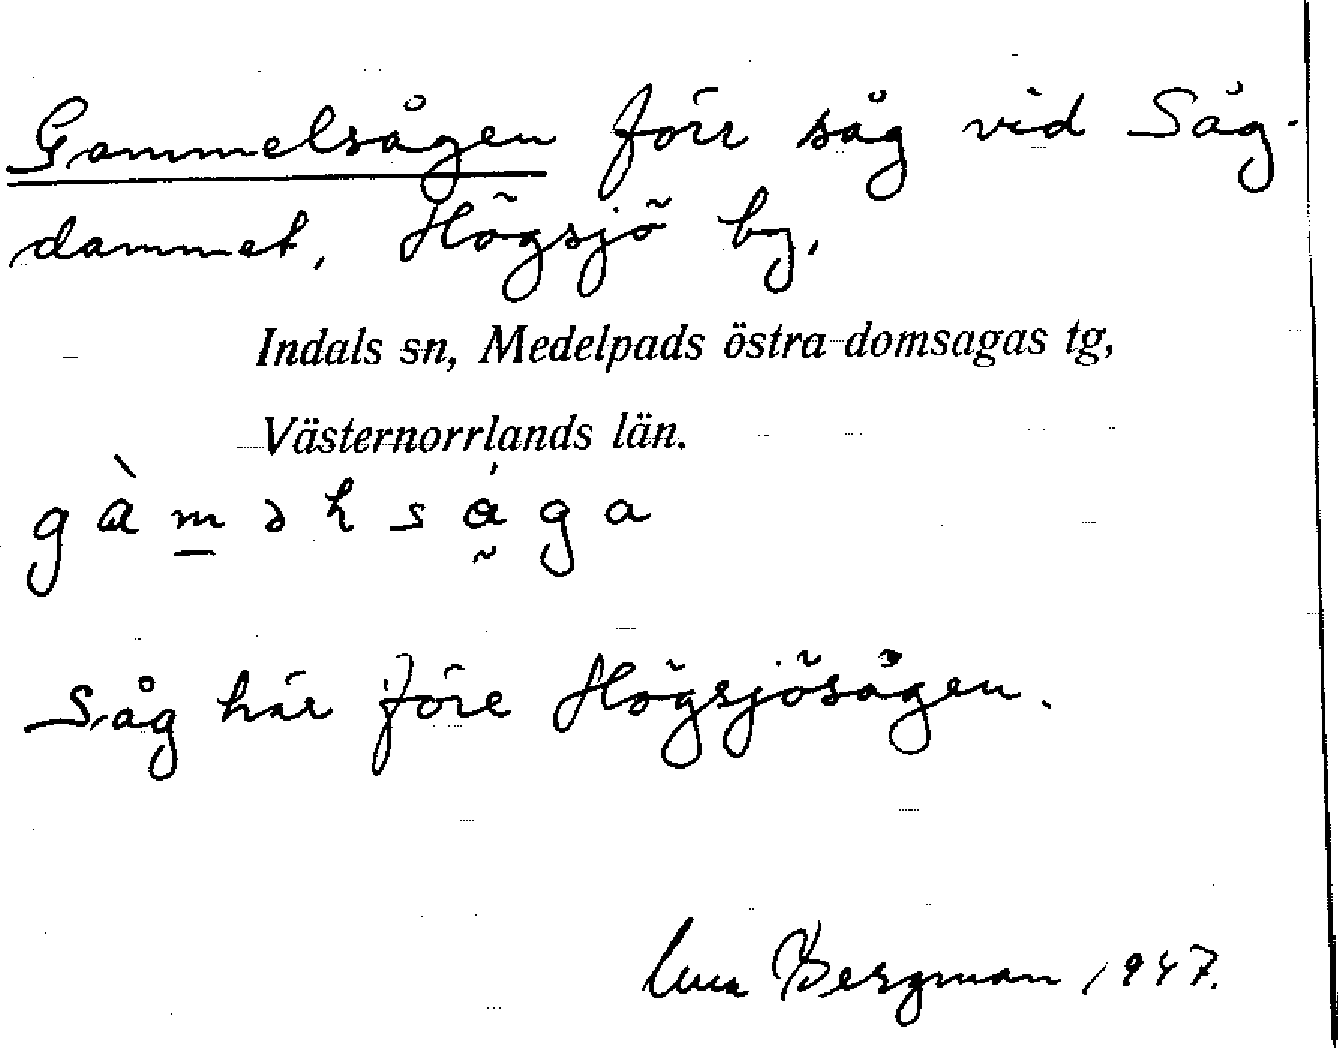 Gammelsågen förr såg vid Såg-
dammet, Högsjö by,
Indals sn, Medelpads östra domsagas tg,
Västernorrlands län.
gàməlsåga
Såg här före Högsjösågen.
Bergman 1947.